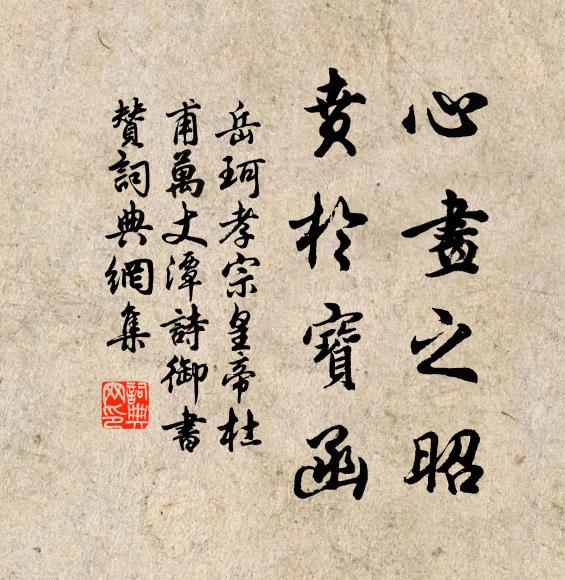 心畫之昭
賁於寶函
岳珂孝宗皇帝杜
甫萬丈潭詩御書
贊詞典網集
詞典网印